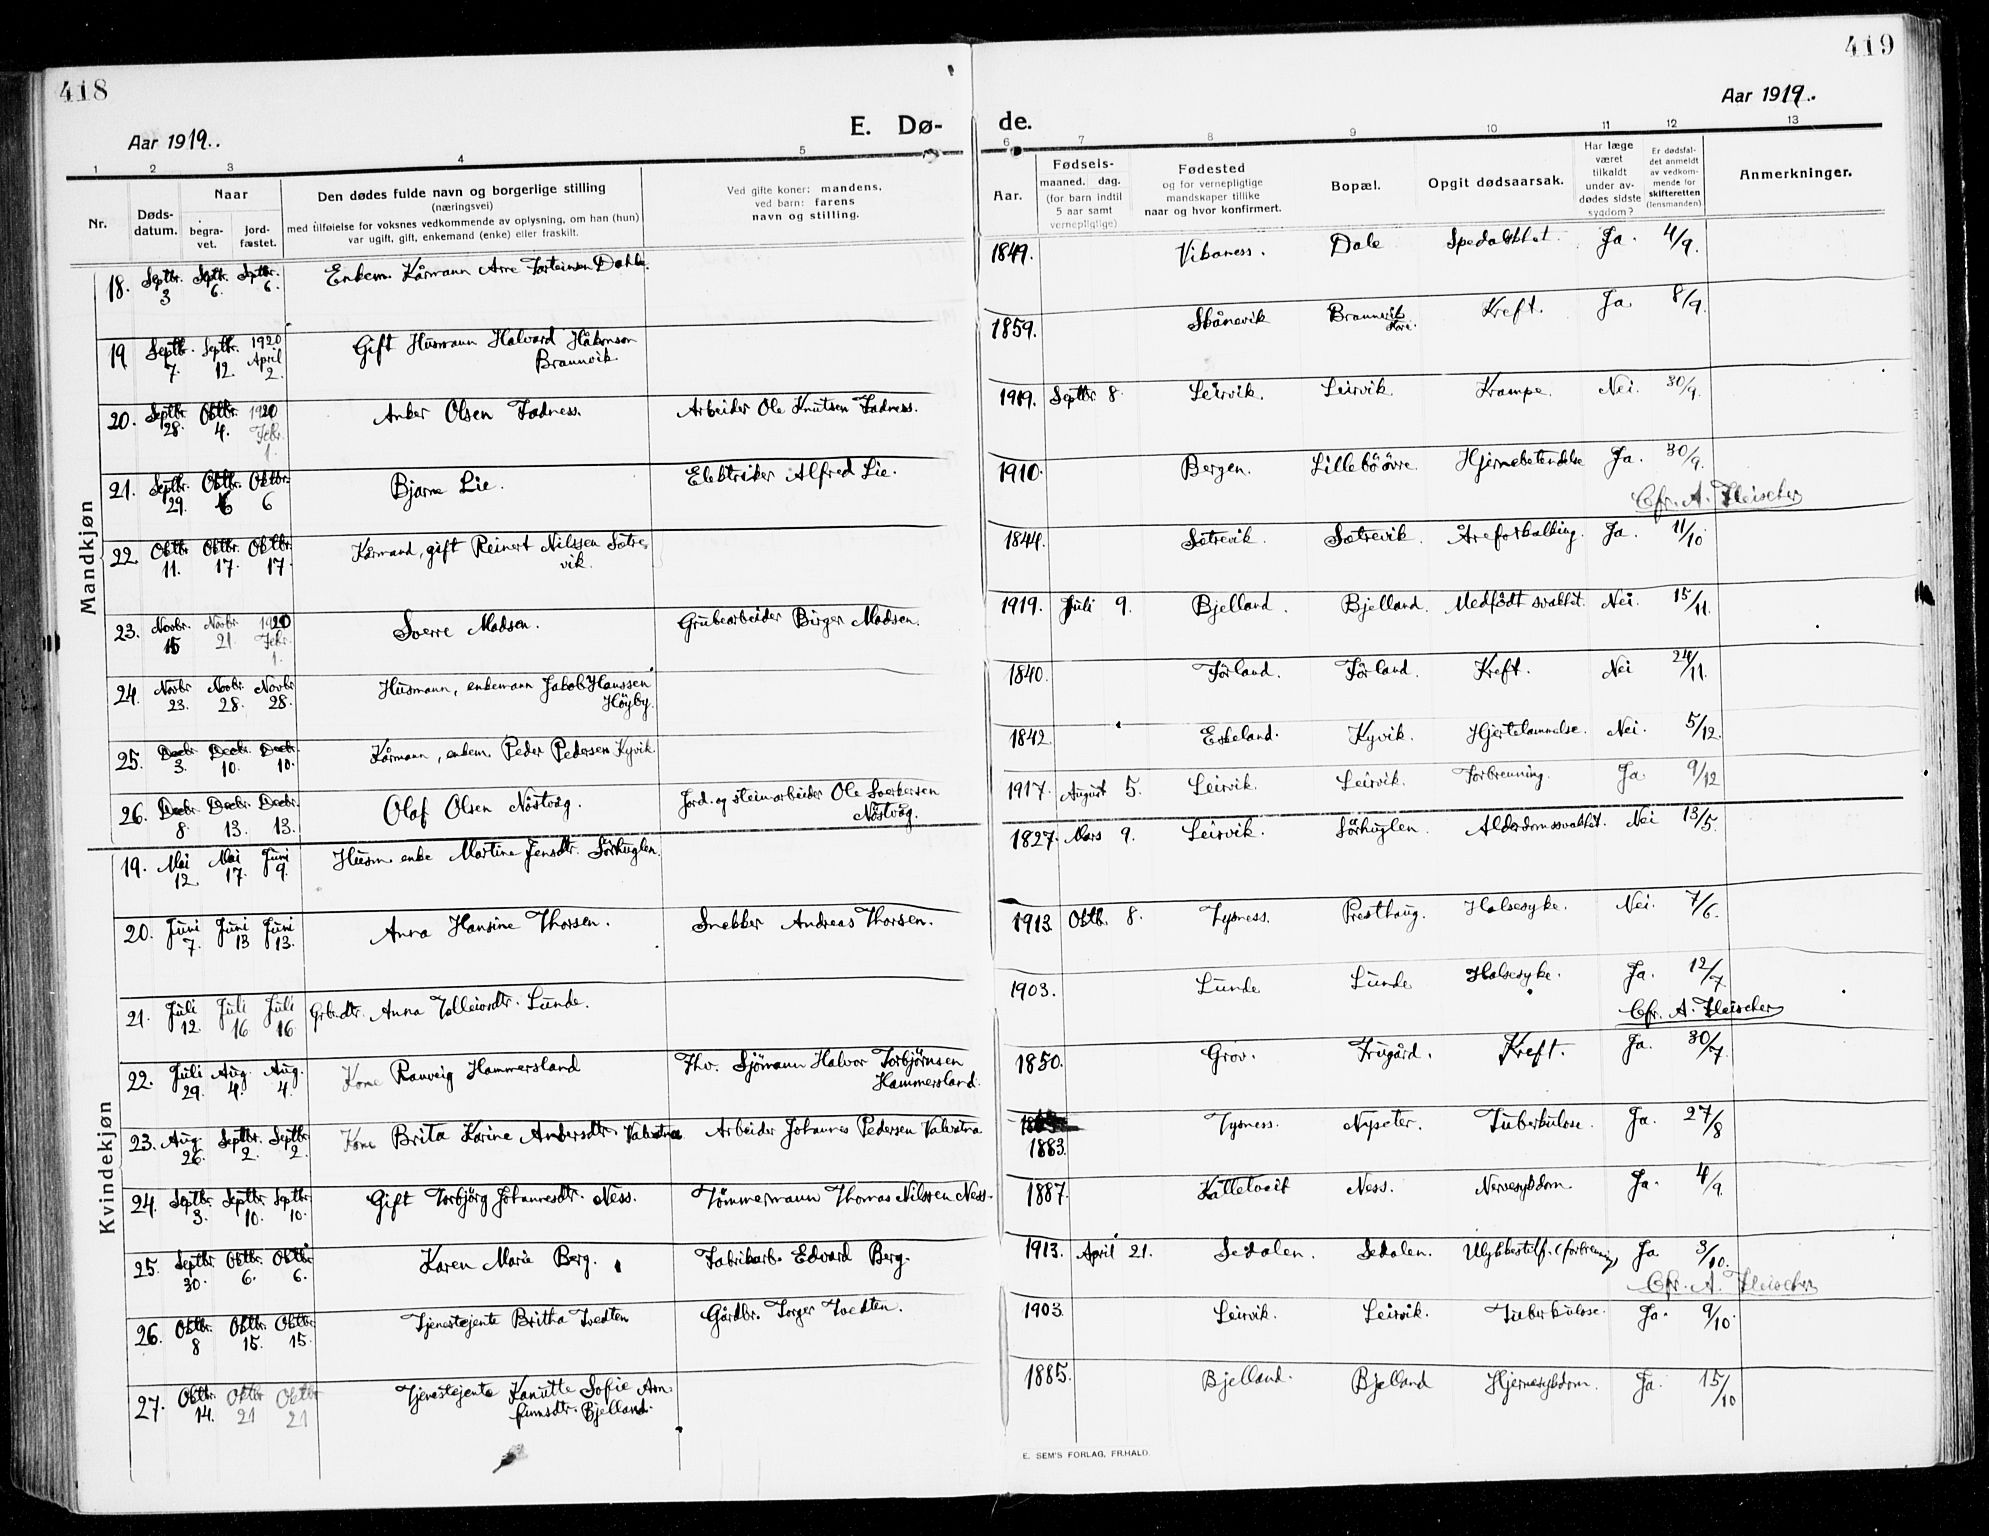 418
419
Aar 1919.
Aar 1919.
E. Dø-
de.
1 2 3 4 5 6 7 8 9 10 11 12 13
Nr.
Døds-
datum.
Naar
begra-
vet.
jord-
fæstet.
Den dødes fulde navn og borgerlige stilling
(næringsvei)
med tilføielse for voksnes vedkommende av oplysning, om han (hun)
var ugift, gift, enkemand (enke) eller fraskilt.
Ved gifte koner: mandens,
ved barn: farens
navn og stilling.
Aar.
Fødsels-
maaned. dag.
(for barn indtil
5 aar samt
vernepligtige)
Fødested
og for vernepligtige
mandskaper tillike
naar og hvor konfirmert.
Bopæl.
Opgit dødsaarsak.
Har læge
været
tilkaldt
under av-
dødes sidste
sygdom?
Er dødsfal-
det anmeldt
av vedkom-
mende for
skifteretten
(lensmanden)
Anmerkninger.
Mandkjøn
18. Septbr. 3 Septbr. 6. Septbr. 6. Enkem. Kårmann Arne Torteinsen Dahle. 1849. Vikaness. Dale Spedalskhet. Ja. 4/9.
19 Septbr. 7. Septbr. 12. 1920 April 2. Gift Husmann Halvard Håkonson
Braunvik 1859. Skånevik Braunvik Kreft. Ja. 8/9.
20. Septbr. 28. Oktbr. 4. 1920 Febr. 1. Anker Olsen Tadness. Arbeider Ole Knutsen Tadness. 1919. Septbr 8. Leirvik. Leirvik. Krampe. Nei. 30/9.
21. Septbr. 29. Oktbr. 6 Oktbr. 6 Bjarne Lie. Elektriker Alfred Lie. 1910. Bergen. Lillebö övre. Hjernebetendelse Ja. 30/9.
Cfr. A. Fleischer
22. Oktbr 11. Oktbr. 17. Oktbr. 17. Kårmand, gift Reinert Nilssen Sætre-
vik. 1844. Sætrevik. Sætrevik. Åreforkalking. Ja. 11/10
23. Novbr. 15 Novbr 21. 1920 Febr. 1. Sverre Madsen. Grubearbeider Birger Madsen. 1919. Juli 9. Bjelland. Bjelland. Medfödt svakhet. Nei. 15/11.
24. Novbr 23. Novbr. 28. Novbr 28. Husmann, enkemann Jakob Hanssen
Höyby. 1840. Förland. Förland. Kreft. Nei 24/11.
25. Decbr. 3. Decbr. 10. Decbr. 10. Kårmann, enkem. Peder Pedersen Kyvik. 1842. Eskeland. Kyvik. Hjertelammelse. Nei. 5/12.
26. Decbr. 8. Decbr. 13. Decbr. 13. Olaf Olsen Nöstvåg. Jord. og steinarbeider Ole Sverkersen
Nöstvåg. 1917. August 5. Leirvik. Leirvik. Forbrenning. Ja 9/12
Kvindekjøn
19. Mai 12. Mai 17. Juni 9. Husm. enke Martine Jensdtr. Sörhuglen. 1827. Mars 9. Leirvik. Sörhuglen. Alderdomssvakhet. Nei 13/5.
20. Juni 7. Juni 13 Juni 13. Anna Hansine Thorsen. Snekker Andreas Thorsen. 1913. Oktb. 8. Tysness. Presthaug. Halsesyke. Nei. 7/6.
21. Juli 12. Juli 16. Juli 16. Grbr.dtr. Anna Tolleivsdtr. Lunde. 1903. Lunde Lunde Halsesyke. Ja. 12/7
Cfr. A. Fleischer
22. Juli 29. Aug. 4. Aug. 4. Kone Ranveig Hammersland Fhv. Sjömann Halvor Torbjörnsen
Hammersland. 1850. Grov. Frugård. Kreft. Ja. 30/7.
23. Aug. 26. Septbr. 2. Septbr. 2. Kone Brita Karine Andersdtr. Valvatna Arbeider Johannes Pedersen Valvatna 1883. Tysness. Nyseter. Tuberkulose. Ja. 27/8
24. Septbr. 3. Septbr. 10. Septbr. 10. Gift Torbjörg Johannesdtr. Ness. Tömmermann Thomas Nilssen Ness. 1887. Kattetveit Ness. Nervesykdom. Ja. 4/9.
25. Septbr 30. Oktbr. 6. Oktbr. 6. Karen Marie Berg. Fabrikarb. Edvard Berg. 1913. April 21. Sedalen. Sedalen. Ulykkestilf. (forbrenning) Ja 3/10.
Cfr. A. Fleischer
26. Oktbr. 8 Oktbr. 15. Oktbr. 15. Tjenestejente Britha Tvedten Gårdbr. Torger Tvedten. 1903. Leirvik. Leirvik. Tuberkulose. Ja. 9/10.
27. Oktbr. 14. Oktbr 21 Oktbr 21 Tjenestejente Kanutte Sofie Arn-
finnsdtr. Bjelland. 1885. Bjelland. Bjelland Hjernesykdom. Ja. 15/10
E. SEM'S FORLAG, FR.HALD.